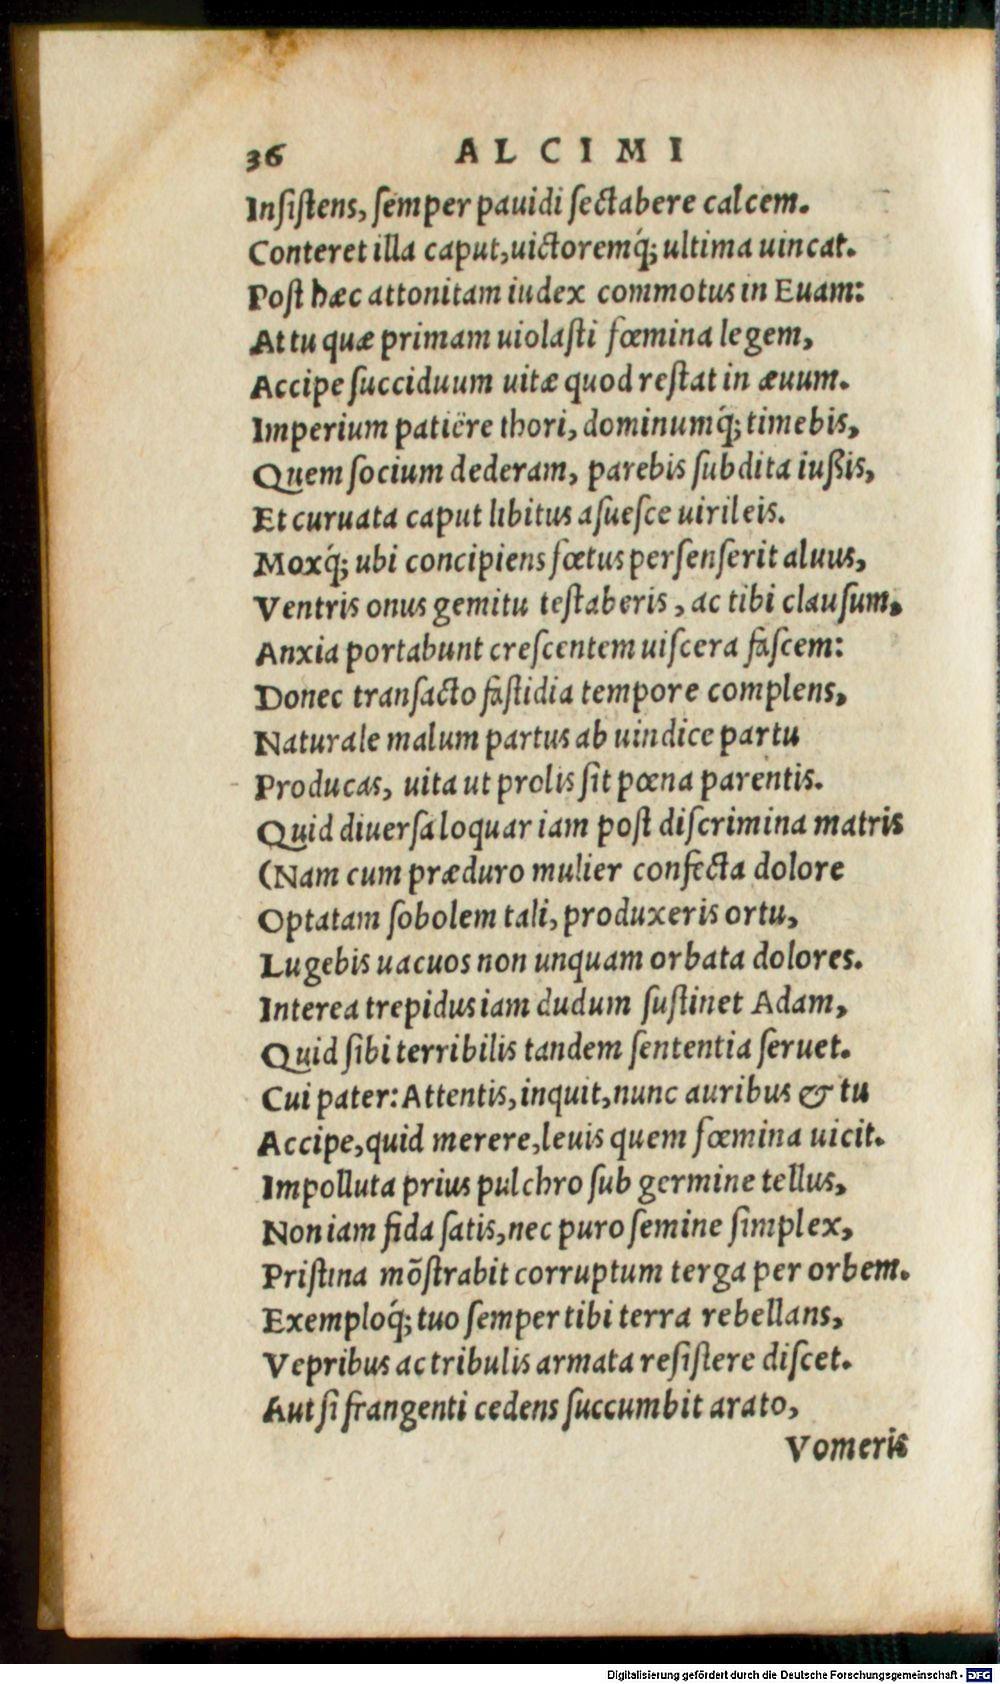 36 ALCIMI
Insistens, semper pauidi sectabere calcem.
Conteret illa caput, uictoremq́; ultima uincat.
Post hæc attonitam iudex commotus in Euam:
At tu quæ primam uiolasti fœmina legem,
Accipe succiduum uitæ quod restat in æuum.
Imperium patiëre thori, dominumq́; timebis,
Quem socium dederam, parebis subdita iußis,
Et curuata caput libitus asuesce uirileis.
Moxq́; ubi concipiens fœtus persenserit aluus,
Ventris onus gemitu testaberis, ac tibi clausum,
Anxia portabunt crescentem uiscera fascem:
Donec transacto fastidia tempore complens,
Naturale malum partus ab uindice partu
Producas, uita ut prolis sit pœna parentis.
Quid diuersa loquar iam post discrimina matris
(Nam cum præduro mulier confecta dolore
Optatam sobolem tali, produxeris ortu,
Lugebis uacuos non unquam orbata dolores.
Interea trepidus iam dudum sustinet Adam,
Quid sibi terribilis tandem sententia seruet.
Cui pater: Attentis, inquit, nunc auribus & tu
Accipe, quid merere, leuis quem fœmina uicit.
Impolluta prius pulchro sub germine tellus,
Non iam fida satis, nec puro semine simplex,
Pristina mõstrabit corruptum terga per orbem.
Exemploq́; tuo semper tibi terra rebellans,
Vepribus ac tribulis armata resistere discet.
Aut si frangenti cedens succumbit arato,
Vomeris
Digitalisierung gefördert durch die Deutsche Forschungsgemeinschaft - DFG